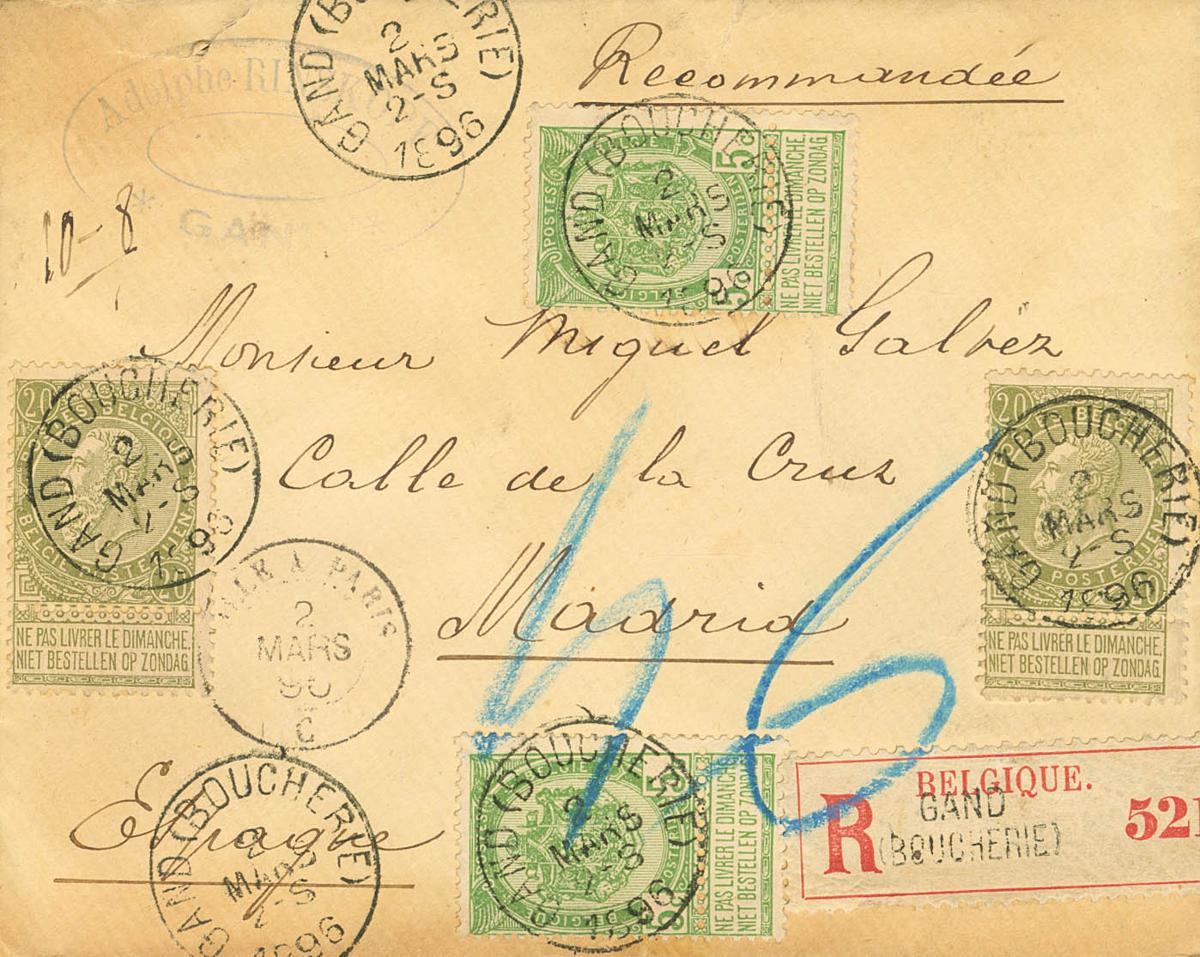 GAND (BOUCHERIE)
2
MARS
2-S
1896
Recommandée
Adolphe
GAND
10-8
POSTES
5 c
5
NE PAS LIVRER LE DIMANCHE.
NIET BESTELLEN OP ZONDAG
GAND (BOUCHERIE)
2
MARS
2-S
1896
Monsieur Miguel Galvez
Calle de la Cruz
Madrid
Espagne
20
BELGIQUE
POSTERIJEN
20
NE PAS LIVRER LE DIMANCHE.
NIET BESTELLEN OP ZONDAG
GAND (BOUCHERIE)
2
MARS
1896
20
POSTERIJEN
NE PAS LIVRER LE DIMANCHE.
NIET BESTELLEN OP ZONDAG
GAND (BOUCHERIE)
2
MARS
2-S
1896
LILLE A PARIS
2
MARS
96
C
46
NE PAS LIVRER LE DIMANCHE.
NIET BESTELLEN OP ZONDAG
GAND (BOUCHERIE)
2
MARS
2-S
1896
GAND (BOUCHERIE)
2
MARS
2-S
1896
BELGIQUE.
R
GAND
(BOUCHERIE)
521